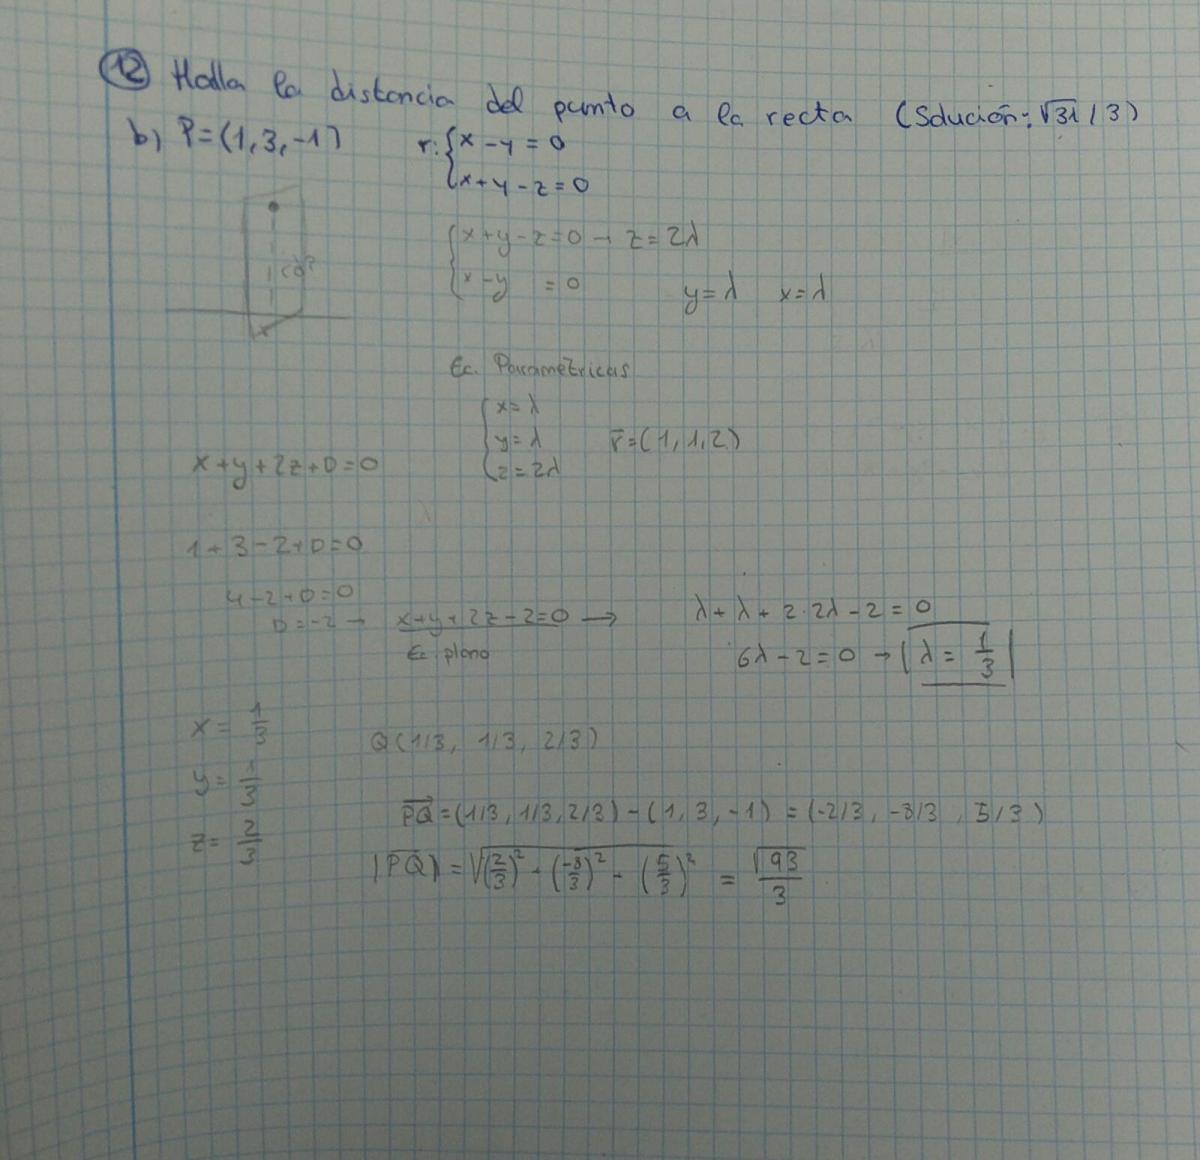 12 Halla la distancia del punto a la recta (Solución: √31/3)
b) P=(1,3,-1) r: {x-y=0
{x+y-z=0
{x+y-z=0 → z=2λ
{x-y =0 y=λ x=λ
Ec. Paramétricas
{x=λ
{y=λ r⃗=(1,1,2)
{z=2λ
x+y+2z+D=0
1+3-2+D=0
4-2+D=0
D=-2 → x+y+2z-2=0 → λ+λ+2·2λ-2=0
Ec plano 6λ-2=0 → | λ= 1/3 |
x= 1/3
Q(1/3, 1/3, 2/3)
y= 1/3
z= 2/3
PQ⃗=(1/3, 1/3, 2/3)-(1, 3, -1) = (-2/3, -8/3, 5/3)
|PQ⃗| = √((2/3)² - (-8/3)² - (5/3)²) = √93/3